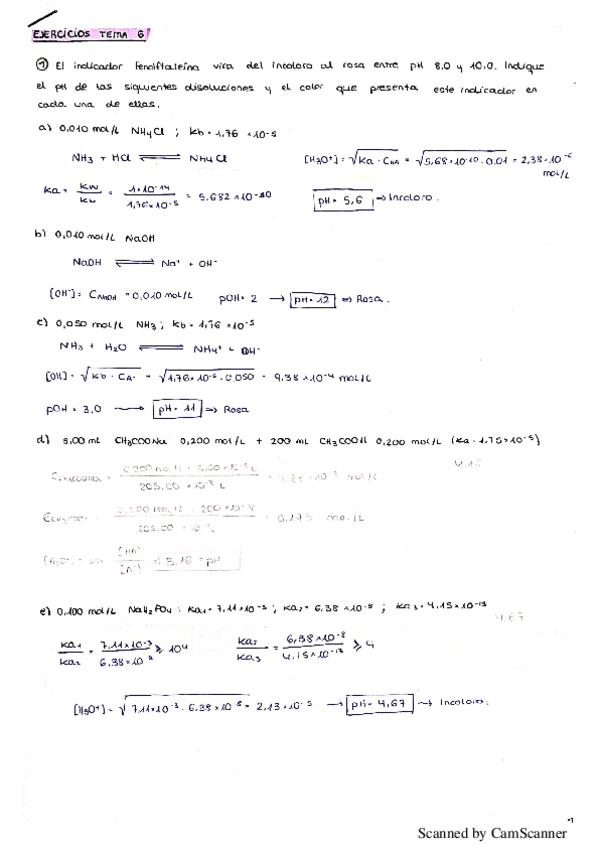 EJERCICIOS TEMA 6
① El indicador Fenolftaleína vira del incoloro al rosa entre pH 8.0 y 10.0. Indique
el pH de las siguientes disoluciones y el color que presenta este indicador en
cada una de ellas.
a) 0,010 mol/L NH4Cl ; kb = 1,76 × 10-5
NH3 + HCl ⇌ NH4Cl [H3O+] = √ka · CHA = √5,68×10-10 · 0.01 = 2,38 × 10-6
mol/L
ka = kw/kb = 1×10-14/1,76×10-5 = 5,682 × 10-10 pH = 5,6 → Incoloro.
b) 0,010 mol/L NaOH
NaOH ⇌ Na+ + OH-
[OH-] = CNaOH = 0,010 mol/L pOH = 2 → pH = 12 ⇒ Rosa.
c) 0,050 mol/L NH3 ; kb = 1,76 × 10-5
NH3 + H2O ⇌ NH4+ + OH-
[OH] = √kb · CA- = √1,76×10-5 · 0.050 = 9,38 × 10-4 mol/L
pOH = 3,0 → pH = 11 ⇒ Rosa
d) 5,00 mL CH3COONa 0,200 mol/L + 200 mL CH3COOH 0,200 mol/L (ka = 1.75×10-5)
0,200 mol/L · 5,00 ×10-3 L
205,00 × 10-3 L
mol/L
0,200 mol/L · 200 × 10-3
205,00 × 10-3
= 0,195 mol/L
[HA]
[A-]
= 3,16 = pH
e) 0,100 mol/L NaH2PO4 : ka1 = 7,11×10-3 ; ka2 = 6,38 ×10-8 ; ka3 = 4,15×10-13
4,67
ka1/ka2 = 7,11×10-3/6,38×10-8 ≥ 104 ka2/ka3 = 6,38×10-8/4,15×10-13 ≥ 4
[H3O+] = √7,11×10-3 · 6,38 × 10-8 = 2,13 × 10-5 → pH = 4,67 → Incoloro.
1
Scanned by CamScanner